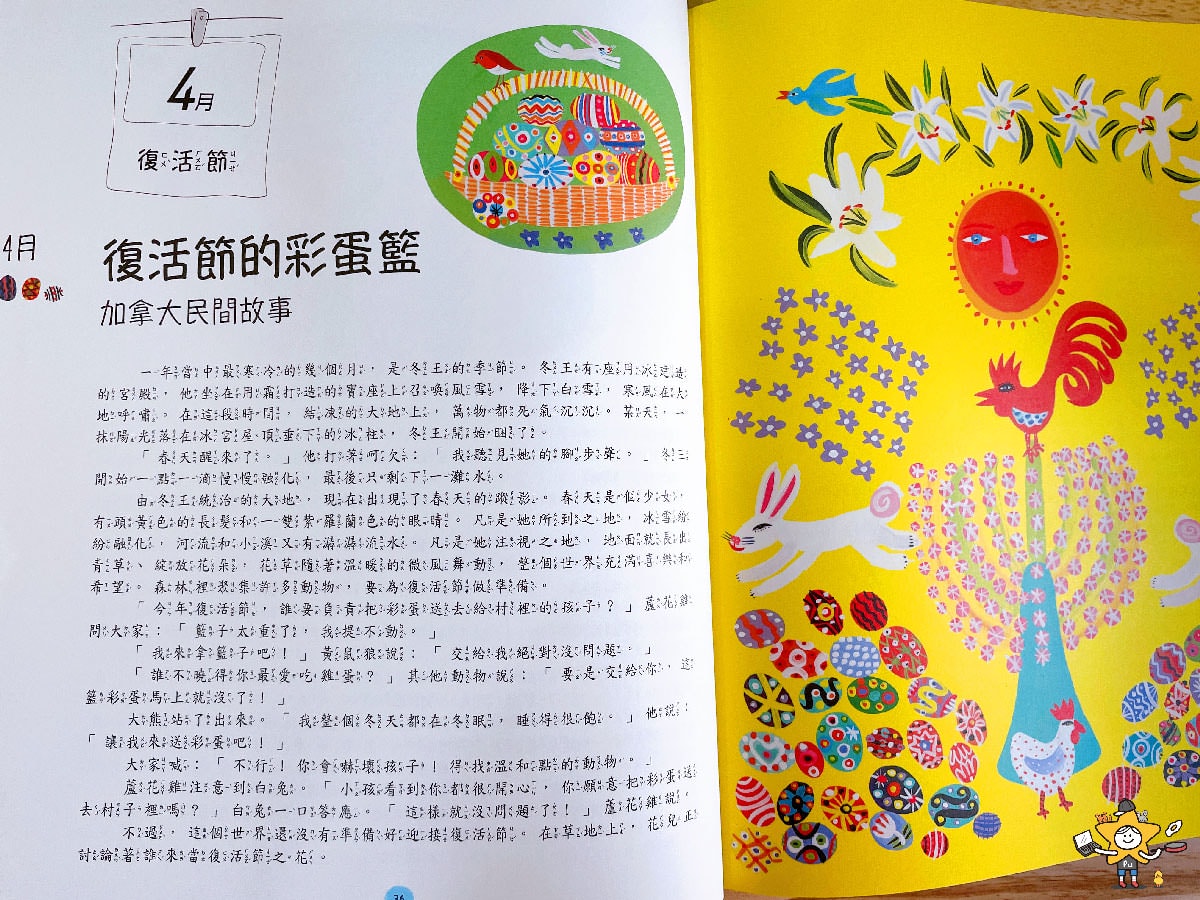 4月
復活節
4月
復活節的彩蛋籃
加拿大民間故事
一年當中最寒冷的幾個月，是冬王的季節。冬王有座用冰建造
的宮殿，他坐在用霜打造的寶座上召喚風雪，降下白雪，寒風在大
地呼嘯。在這段時間，結凍的大地上，萬物都死氣沉沉。某天，一
抹陽光落在冰宮屋頂垂下的冰柱，冬王開始睏了。
「春天醒來了。」他打著呵欠：「我聽見她的腳步聲。」冬王
開始一點一滴慢慢融化，最後只剩下一灘水。
由冬王統治的大地，現在出現了春天的蹤影。春天是個少女，
有頭黃色的長髮和一雙紫羅蘭色的眼睛。凡是她所到之地，冰雪紛
紛融化，河流和小溪又有潺潺流水。凡是她注視之地，地面就長出
青草、綻放花朵，花草隨著溫暖的微風舞動，整個世界充滿喜樂和
希望。森林裡聚集許多動物，要為復活節做準備。
「今年復活節，誰要負責把彩蛋送去給村裡的孩子？」蘆花雞
問大家：「籃子太重了，我提不動。」
「我來拿籃子吧！」黃鼠狼說：「交給我絕對沒問題。」
「誰不曉得你最愛吃雞蛋？」其他動物說：「要是交給你，這
籃彩蛋馬上就沒了！」
大熊站了出來。「我整個冬天都在冬眠，睡得很飽。」他說：
「讓我來送彩蛋吧！」
大家喊：「不行！你會嚇壞孩子！得找溫和點的動物。」
蘆花雞注意到白兔。「小孩看到你都很開心，你願意把彩蛋送
去村子裡嗎？」白兔一口答應。「這樣就沒問題了！」蘆花雞說。
不過，這個世界還沒有準備好迎接復活節。在草地上，花兒正
討論著誰來當復活節之花。
36